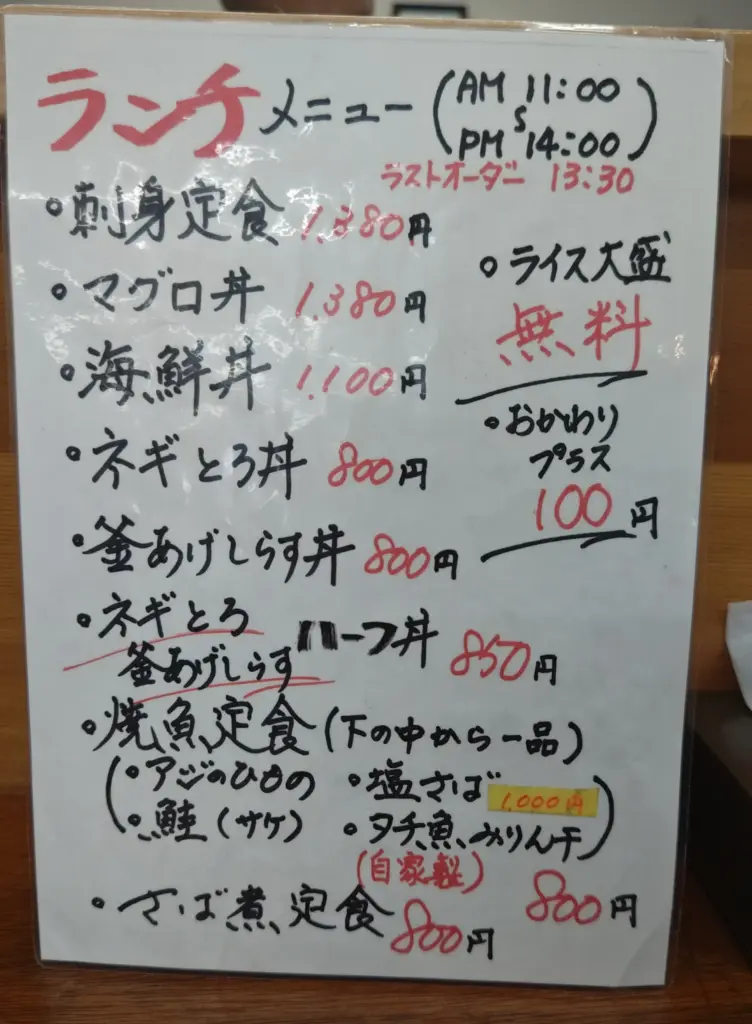 ランチメニュー (AM 11:00
〜
PM 14:00)
ラストオーダー 13:30
・刺身定食 1,380円
・マグロ丼 1,380円
・海鮮丼 1,100円
・ネギとろ丼 800円
・釜あげしらす丼 800円
・ネギとろ
釜あげしらす ハーフ丼 850円
・焼魚定食 (下の中から一品)
(・アジのひもの ・塩さば 1,000円
・鮭 (サケ) ・タチ魚みりん干)
(自家製)
800円
・さば煮定食 800円
・ライス大盛
無料
・おかわり
プラス
100円